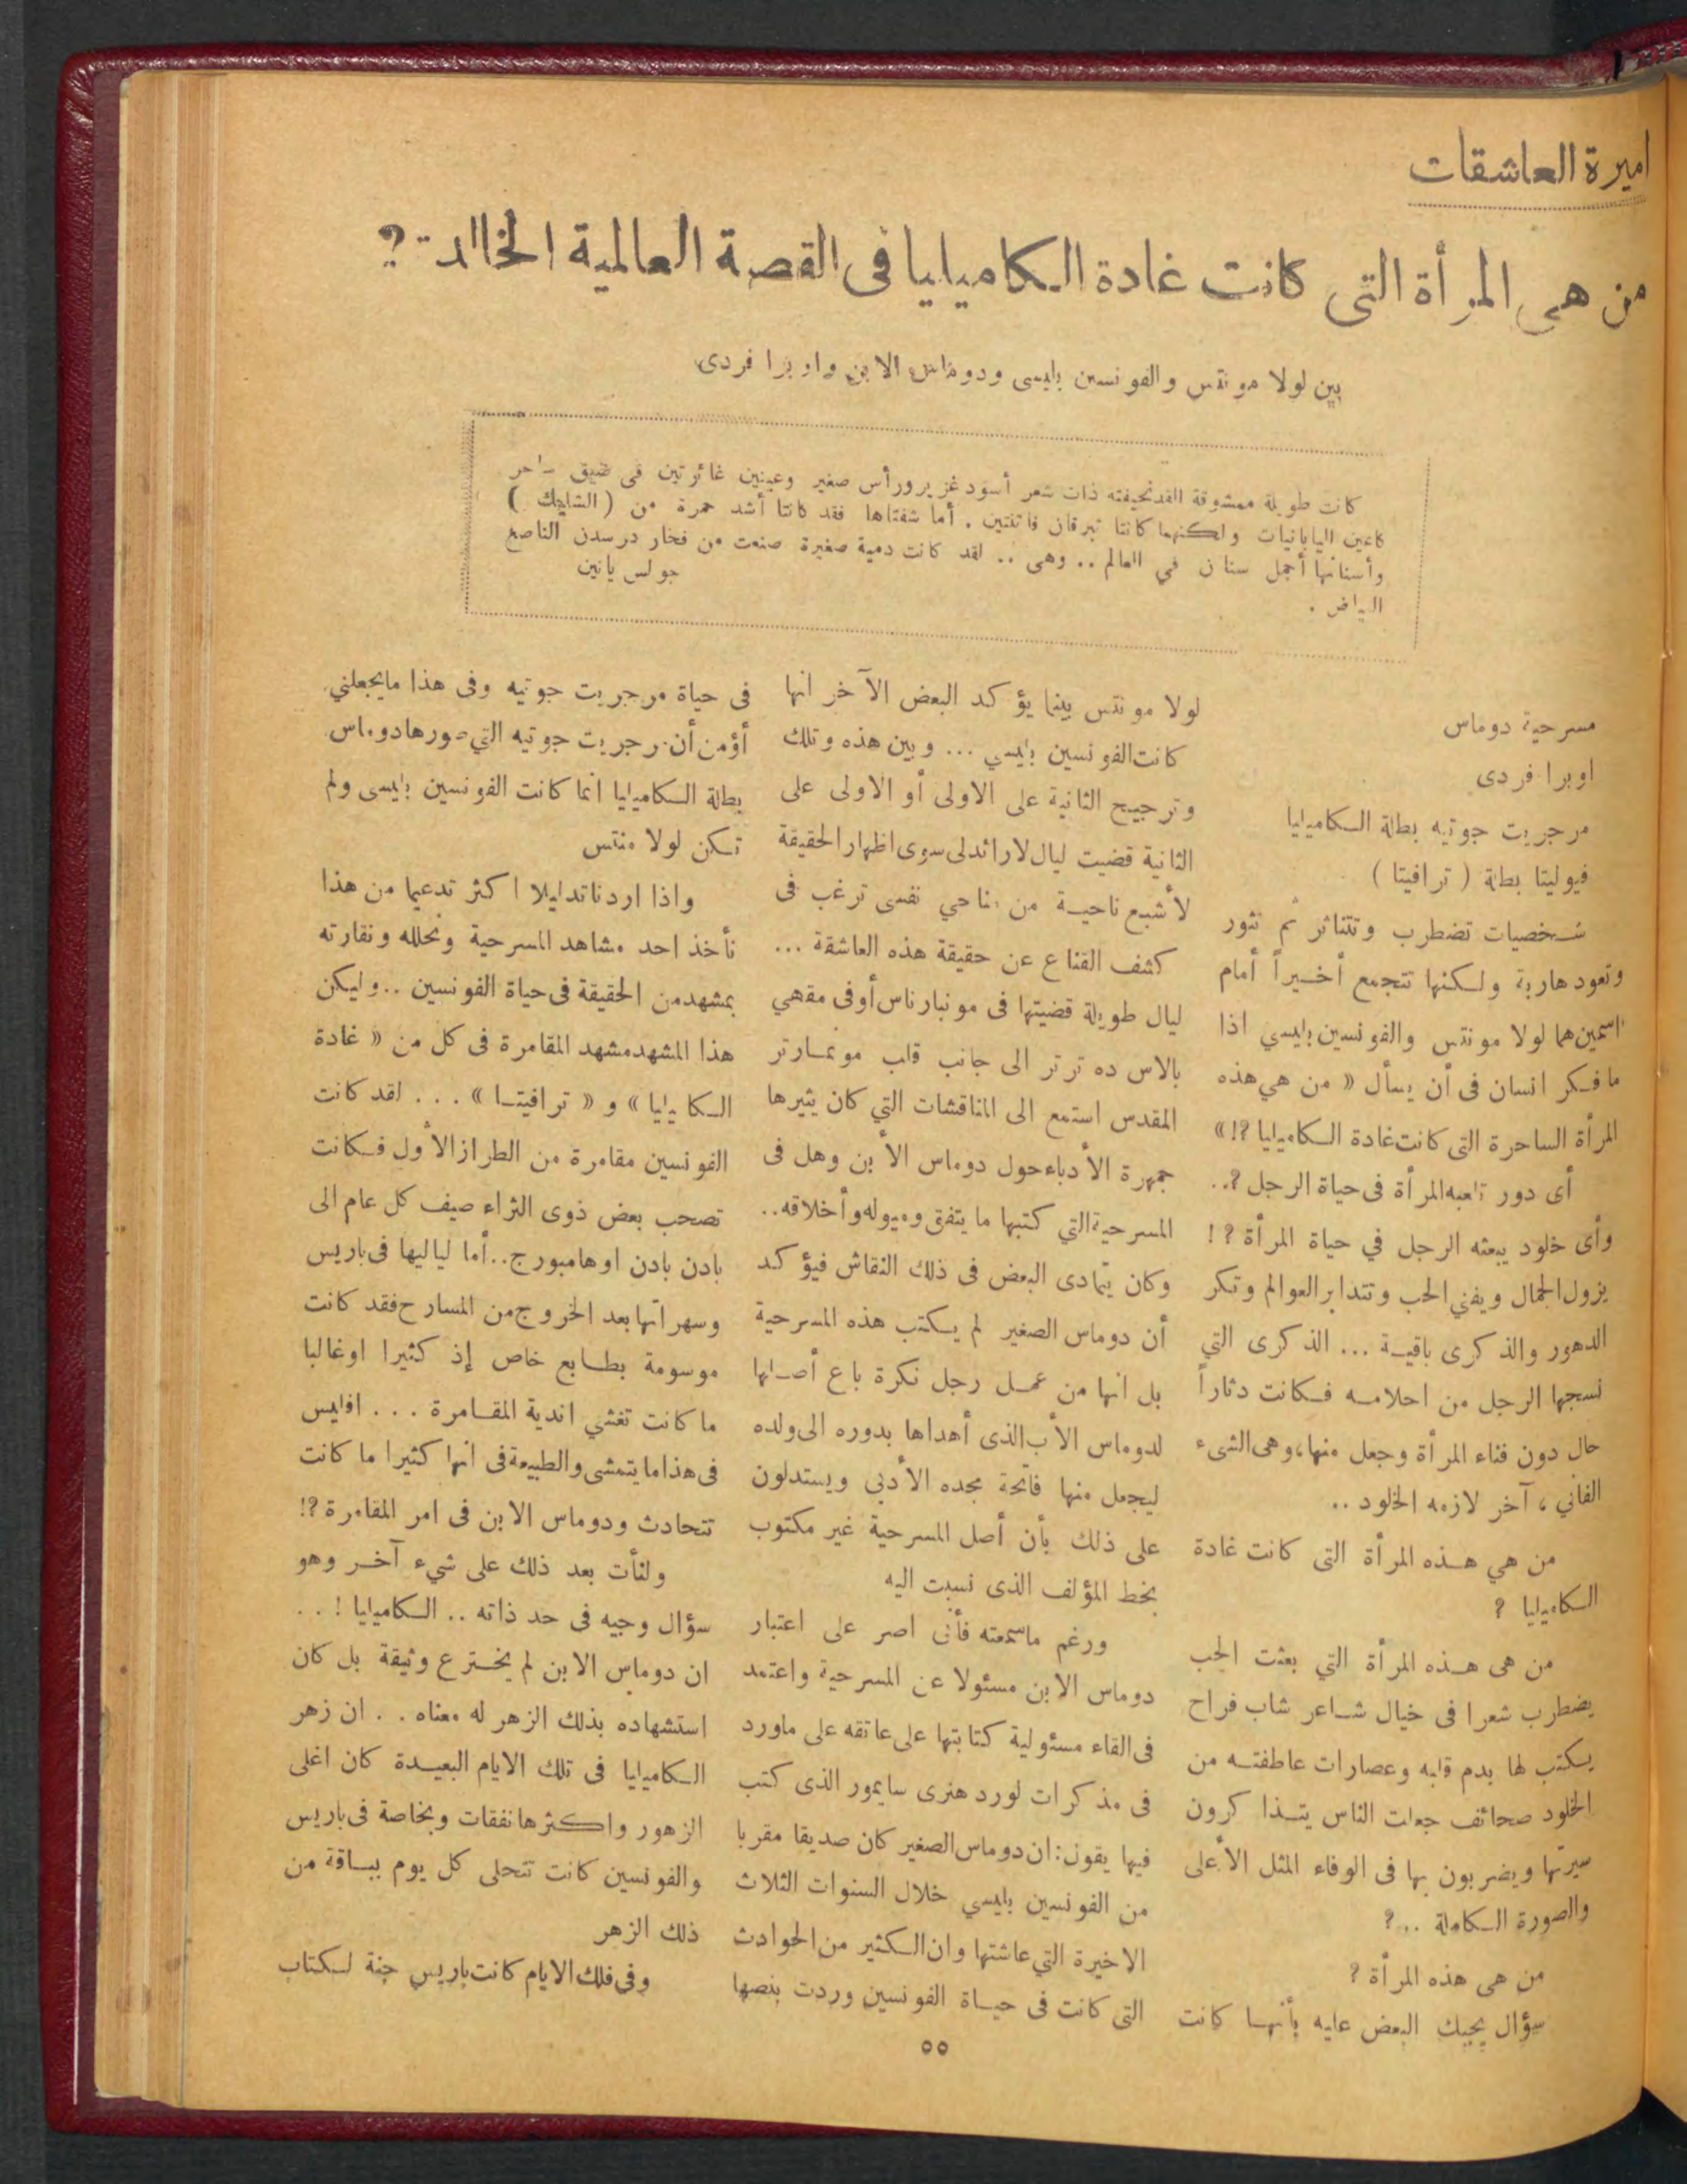 اميرة العاشقات
من هي المرأة التى كانت غادة الكاميليا فى القصة العالمية الخالدة ؟
بين لولا مونتس والفونسين بليسى ودوماس الابن واوبرا فردى
كانت طويلة ممشوقة القد نحيفته ذات شعر أسود غزير ورأس صغير وعينين غائرتين فى ضيق ساحر
كاعين اليابانيات ولكنهما كانتا تبرقان فاتنتين . أما شفتاها فقد كانتا أشد حمرة من ( الشايك )
وأسنانها أجمل سنان في العالم .. وهى .. لقد كانت دمية صغيرة صنعت من فخار درسدن الناصع
البياض .
جولس يانين
مسرحية دوماس
اوبرا فردى
مرجريت جوتيه بطلة الكاميليا
فيوليتا بطلة ( ترافيتا )
شخصيات تضطرب وتتناثر ثم تثور
وتعود هاربة ولكنها تتجمع أخيراً أمام
اسمين هما لولا مونتس والفونسين بليسي اذا
ما فكر انسان فى أن يسأل « من هي هذه
المرأة الساحرة التى كانت غادة الكاميليا ؟! »
أى دور تلعبه المرأة فى حياة الرجل ؟..
وأى خلود يبعثه الرجل في حياة المرأة ؟ !
يزول الجمال ويفني الحب وتتدابر العوالم وتكر
الدهور والذكرى باقية ... الذكرى التي
نسجها الرجل من احلامه فكانت دثاراً
حال دون فناء المرأة وجعل منها، وهى الشىء
الفاني ، آخر لازمه الخلود ..
من هي هذه المرأة التى كانت غادة
الكاميليا ؟
من هى هذه المرأة التي بعثت الحب
يضطرب شعرا فى خيال شاعر شاب فراح
يكتب لها بدم قلبه وعصارات عاطفته من
الخلود صحائف جعلت الناس يتذاكرون
سيرتها ويضربون بها فى الوفاء المثل الأعلى
والصورة الكاملة ..؟
من هى هذه المرأة ؟
سؤال يجيبك البعض عليه بأنها كانت
لولا مونتس بينما يؤكد البعض الآخر انها
كانت الفونسين بليسي ... وبين هذه وتلك
وترجيح الثانية على الاولى أو الاولى على
الثانية قضيت ليال لا رائد لى سوى اظهار الحقيقة
لأشبع ناحية من مناحي نفسى ترغب فى
كشف القناع عن حقيقة هذه العاشقة ...
ليال طويلة قضيتها فى مونبارناس أو فى مقهي
بالاس ده ترتر الى جانب قلب مونمارتر
المقدس استمع الى المناقشات التي كان يثيرها
جمهرة الأدباء حول دوماس الأبن وهل فى
المسرحية التي كتبها ما يتفق وميوله وأخلاقه..
وكان يتمادى البعض فى ذلك النقاش فيؤكد
أن دوماس الصغير لم يكتب هذه المسرحية
بل انها من عمل رجل نكرة باع أصلها
لدوماس الأب الذى أهداها بدوره الى ولده
ليجعل منها فاتحة مجده الأدبى ويستدلون
على ذلك بأن أصل المسرحية غير مكتوب
بخط المؤلف الذى نسبت اليه
ورغم ماسمعته فأنى اصر على اعتبار
دوماس الابن مسئولا عن المسرحية واعتمد
فى القاء مسئولية كتابتها على عاتقه على ماورد
فى مذكرات لورد هنرى سايمور الذى كتب
فيها يقول : ان دوماس الصغير كان صديقا مقربا
من الفونسين بليسي خلال السنوات الثلاث
الاخيرة التي عاشتها وان الكثير من الحوادث
التى كانت فى حياة الفونسين وردت بنصها
فى حياة مرجريت جوتيه وفى هذا مايجعلني
أؤمن أن مرجريت جوتيه التي صورها دوماس
بطلة الكاميليا انما كانت الفونسين بليسى ولم
تكن لولا منتس
واذا اردنا تدليلا اكثر تدعيما من هذا
نأخذ احد مشاهد المسرحية ونحلله ونقارنه
بمشهد من الحقيقة فى حياة الفونسين .. وليكن
هذا المشهد مشهد المقامرة فى كل من « غادة
الكاميليا » و « ترافيتا » ... لقد كانت
الفونسين مقامرة من الطراز الأول فكانت
تصحب بعض ذوى الثراء صيف كل عام الى
بادن بادن او هامبورج .. أما لياليها فى باريس
وسهراتها بعد الخروج من المسارح فقد كانت
موسومة بطابع خاص إذ كثيرا اوغالبا
ما كانت تغشي اندية المقامرة ... افليس
فى هذا ما يتمشى والطبيعة فى انها كثيرا ما كانت
تتحادث ودوماس الابن فى امر المقامرة ؟!
ولنأت بعد ذلك على شيء آخر وهو
سؤال وجيه فى حد ذاته .. الكاميليا ! ..
ان دوماس الابن لم يخترع وثيقة بل كان
استشهاده بذلك الزهر له معناه .. ان زهر
الكاميليا فى تلك الايام البعيدة كان اغلى
الزهور واكثرها نفقات وبخاصة فى باريس
والفونسين كانت تتحلى كل يوم بباقة من
ذلك الزهر
وفى فلك الايام كانت باريس جنة لكتاب
٥٥